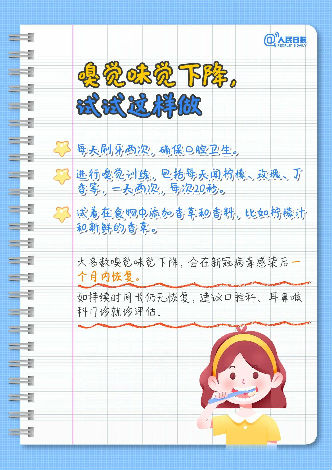 @人民日报
嗅觉味觉下降，
试试这样做
每天刷牙两次，确保口腔卫生。
进行嗅觉训练，包括每天闻柠檬、玫瑰、丁
香等，一天两次，每次20秒。
试着在食物中添加香草和香料，比如柠檬汁
和新鲜的香草。
大多数嗅觉味觉下降，会在新冠病毒感染后一
个月内恢复。
如持续时间长仍无恢复，建议口腔科、耳鼻喉
科门诊就诊评估。